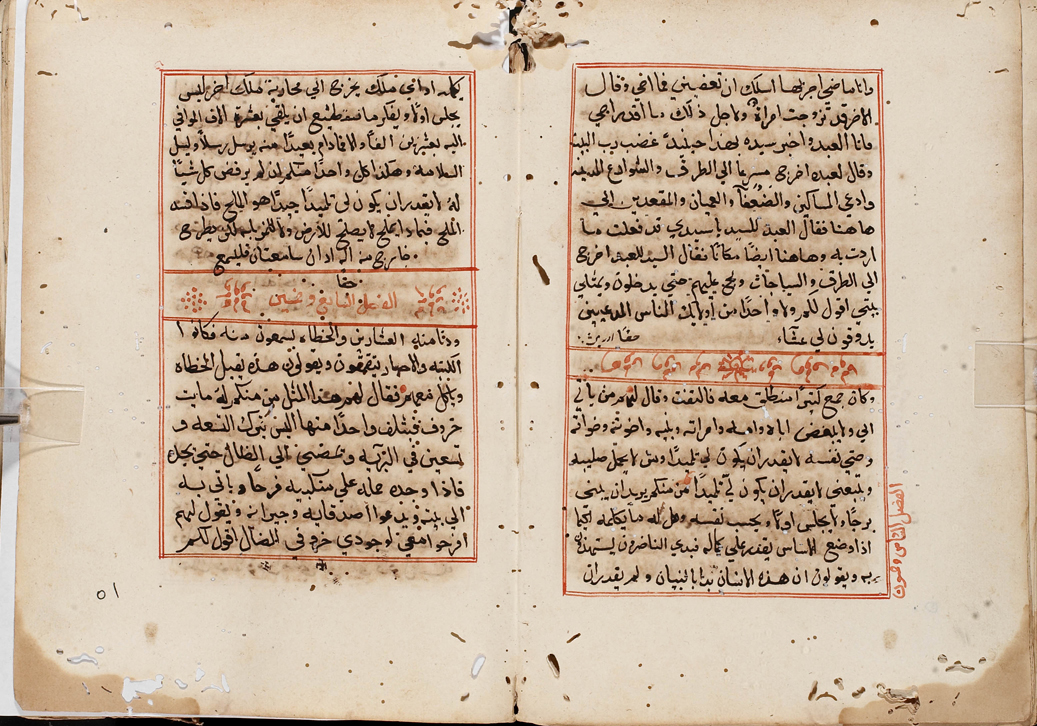 وانا ماضي اجربها اسلك ان تعفيني فما اجي وقال
الاخر قد تزوجت امراة ولاجل ذلك ما اقدر اجي
فاتا العبد واخبر سيده بهدا حينيدٍ غضب رب البيت
وقال لعبده اخرج مسرعًا الي الطرق والشوارع المدينه
وادعي المساكين والضعفا والعميان والمقعدين الي
هاهنا فقال العبد للسيد ياسيدي قد فعلت ما
اردت به وهاهنا ايضًا مكانًا فقال السيد للعبد اخرج
الي الطرق والسياجات ولج عليهم حتي يدخلون ويمتلي
بيتي اقول لكم ولا واحدًا من اوليك الناس المدعيين
يدوقون لي عشاء حقا
وكان جمع كتيرًا منطلق معه فالتفت وقال لهم من ياتي
الي ولا يبغض اباه وامه وامراته وبنيه واخوته وخواته
وحتي نفسه لا يقدر ان يكون لي تلميدًا ومن لا يحمل صليبه
ويتبعني لا يقدر ان يكون لي تلميدًا من منكم يريد ان يبني
برجًا ولا يجلس اولًا ويحسب نفسه وهل له ما يكمله لكيما
اذا وضع الاساس يقدر علي كماله فيبدي الناضرين يستهزون
به ويقولون ان هذه الانسان بدا بالبنيان ولم يقدر ان
الفصل التامن وخمسون
يكمله او اي ملك يخرج الي محاربة ملك اخر ليس
يجلس اولًا ويفكر ان يلقي بعشرة الاف الواتي
اليه بعشرين الفًا والا فمادام بعيدًا منه يرسل رسلًا وليل
السلامه وهكذا كل واحدًا منكم ان لم يرفض كل شيًا
له لا يقدر ان يكون لي تلميدًا جيدًا هو الملح فاذا فسد
الملح فبماذا يملح لا يصلح للارض ولا للمزبله لكن يطرح
خارج من له ادان سامعتان فليسمع
حقًا
الفصل التاسع وخمسين
ودنا منه العشارين والخطاه يسمعون منه فكانوا
الكتبه والاحبار يتقمقمون ويقولون هذه يقبل الخطاه
وياكل معهم فقال لهم هذا المثل من منكم له مايت
خروف فيتلف واحدًا منها اليس يترك التسعه و
تسعين في البريه ويمضي الي الضال حتي يجده
فاذا وجده حمله علي منكبيه فرحًا وياتي به
الي بيته ويدعوا اصدقايه وجيرانه ويقول لهم
افرحوا معي لوجودي خروفي الضال اقول لكم
٥١